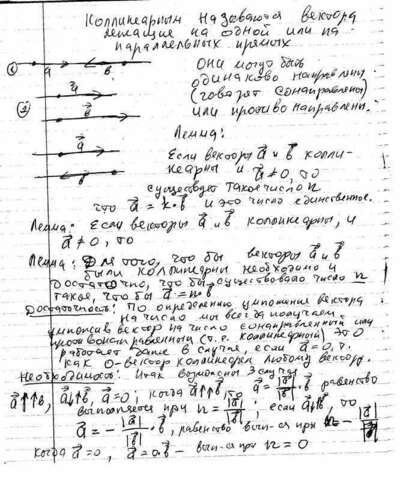 Коллинеарным называются вектора
лежащие на одной или на
параллельных прямых
① a b
они могут быть
одинаково направлены
a⃗
(говорят сонаправлены)
② или противо направлены.
b⃗
Лемма:
a⃗
Если векторы a⃗ и b⃗ колли-
неарны и a⃗≠0, то
b⃗
существует такое число n
что a⃗ = k·b⃗ и это число единственное.
Лемма: Если векторы a⃗ и b⃗ коллинеарны, и
a⃗ ≠ 0, то
Лемма: Для того, что бы векторы a⃗ и b⃗
были коллинеарны необходимо и
достаточно, что бы существовало число n
такое, что бы a⃗ = n·b⃗
Достаточность: По определению умножение вектора
на число мы всегда получаем
умножив вектор на число сонаправленный или
противонаправленный (т.е. коллинеарный) это
работает даже в случае, если a⃗ = 0, т.
как 0-вектор коллинеарен любому вектору.
Необходимость: Итак возможны 3 случая
a⃗↑↑b⃗, a⃗↑↓b⃗, a⃗=0; когда a⃗↑↑b⃗, то a⃗ = |a⃗|/|b⃗| · b⃗ равенство
выполняется при n = |a⃗|/|b⃗|; если a⃗↑↓b⃗, то
a⃗ = - |a⃗|/|b⃗| · b⃗, равенство вып-ся при n = - |a⃗|/|b⃗|
Когда a⃗=0, a⃗=nb⃗ - вып-ся при n = 0